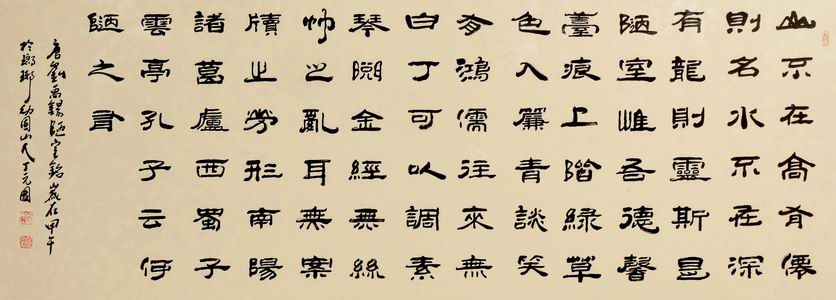 山不在高有僊
則名水不在深
有龍則靈斯是
陋室惟吾德馨
臺痕上階綠草
色入簾青談笑
有鴻儒往來無
白丁可以調素
琴閱金經無絲
竹之亂耳無案
牘之勞形南陽
諸葛廬西蜀子
雲亭孔子云何
陋之有
唐劉禹錫陋室銘歲在甲午
於瑯琊山人丁元國